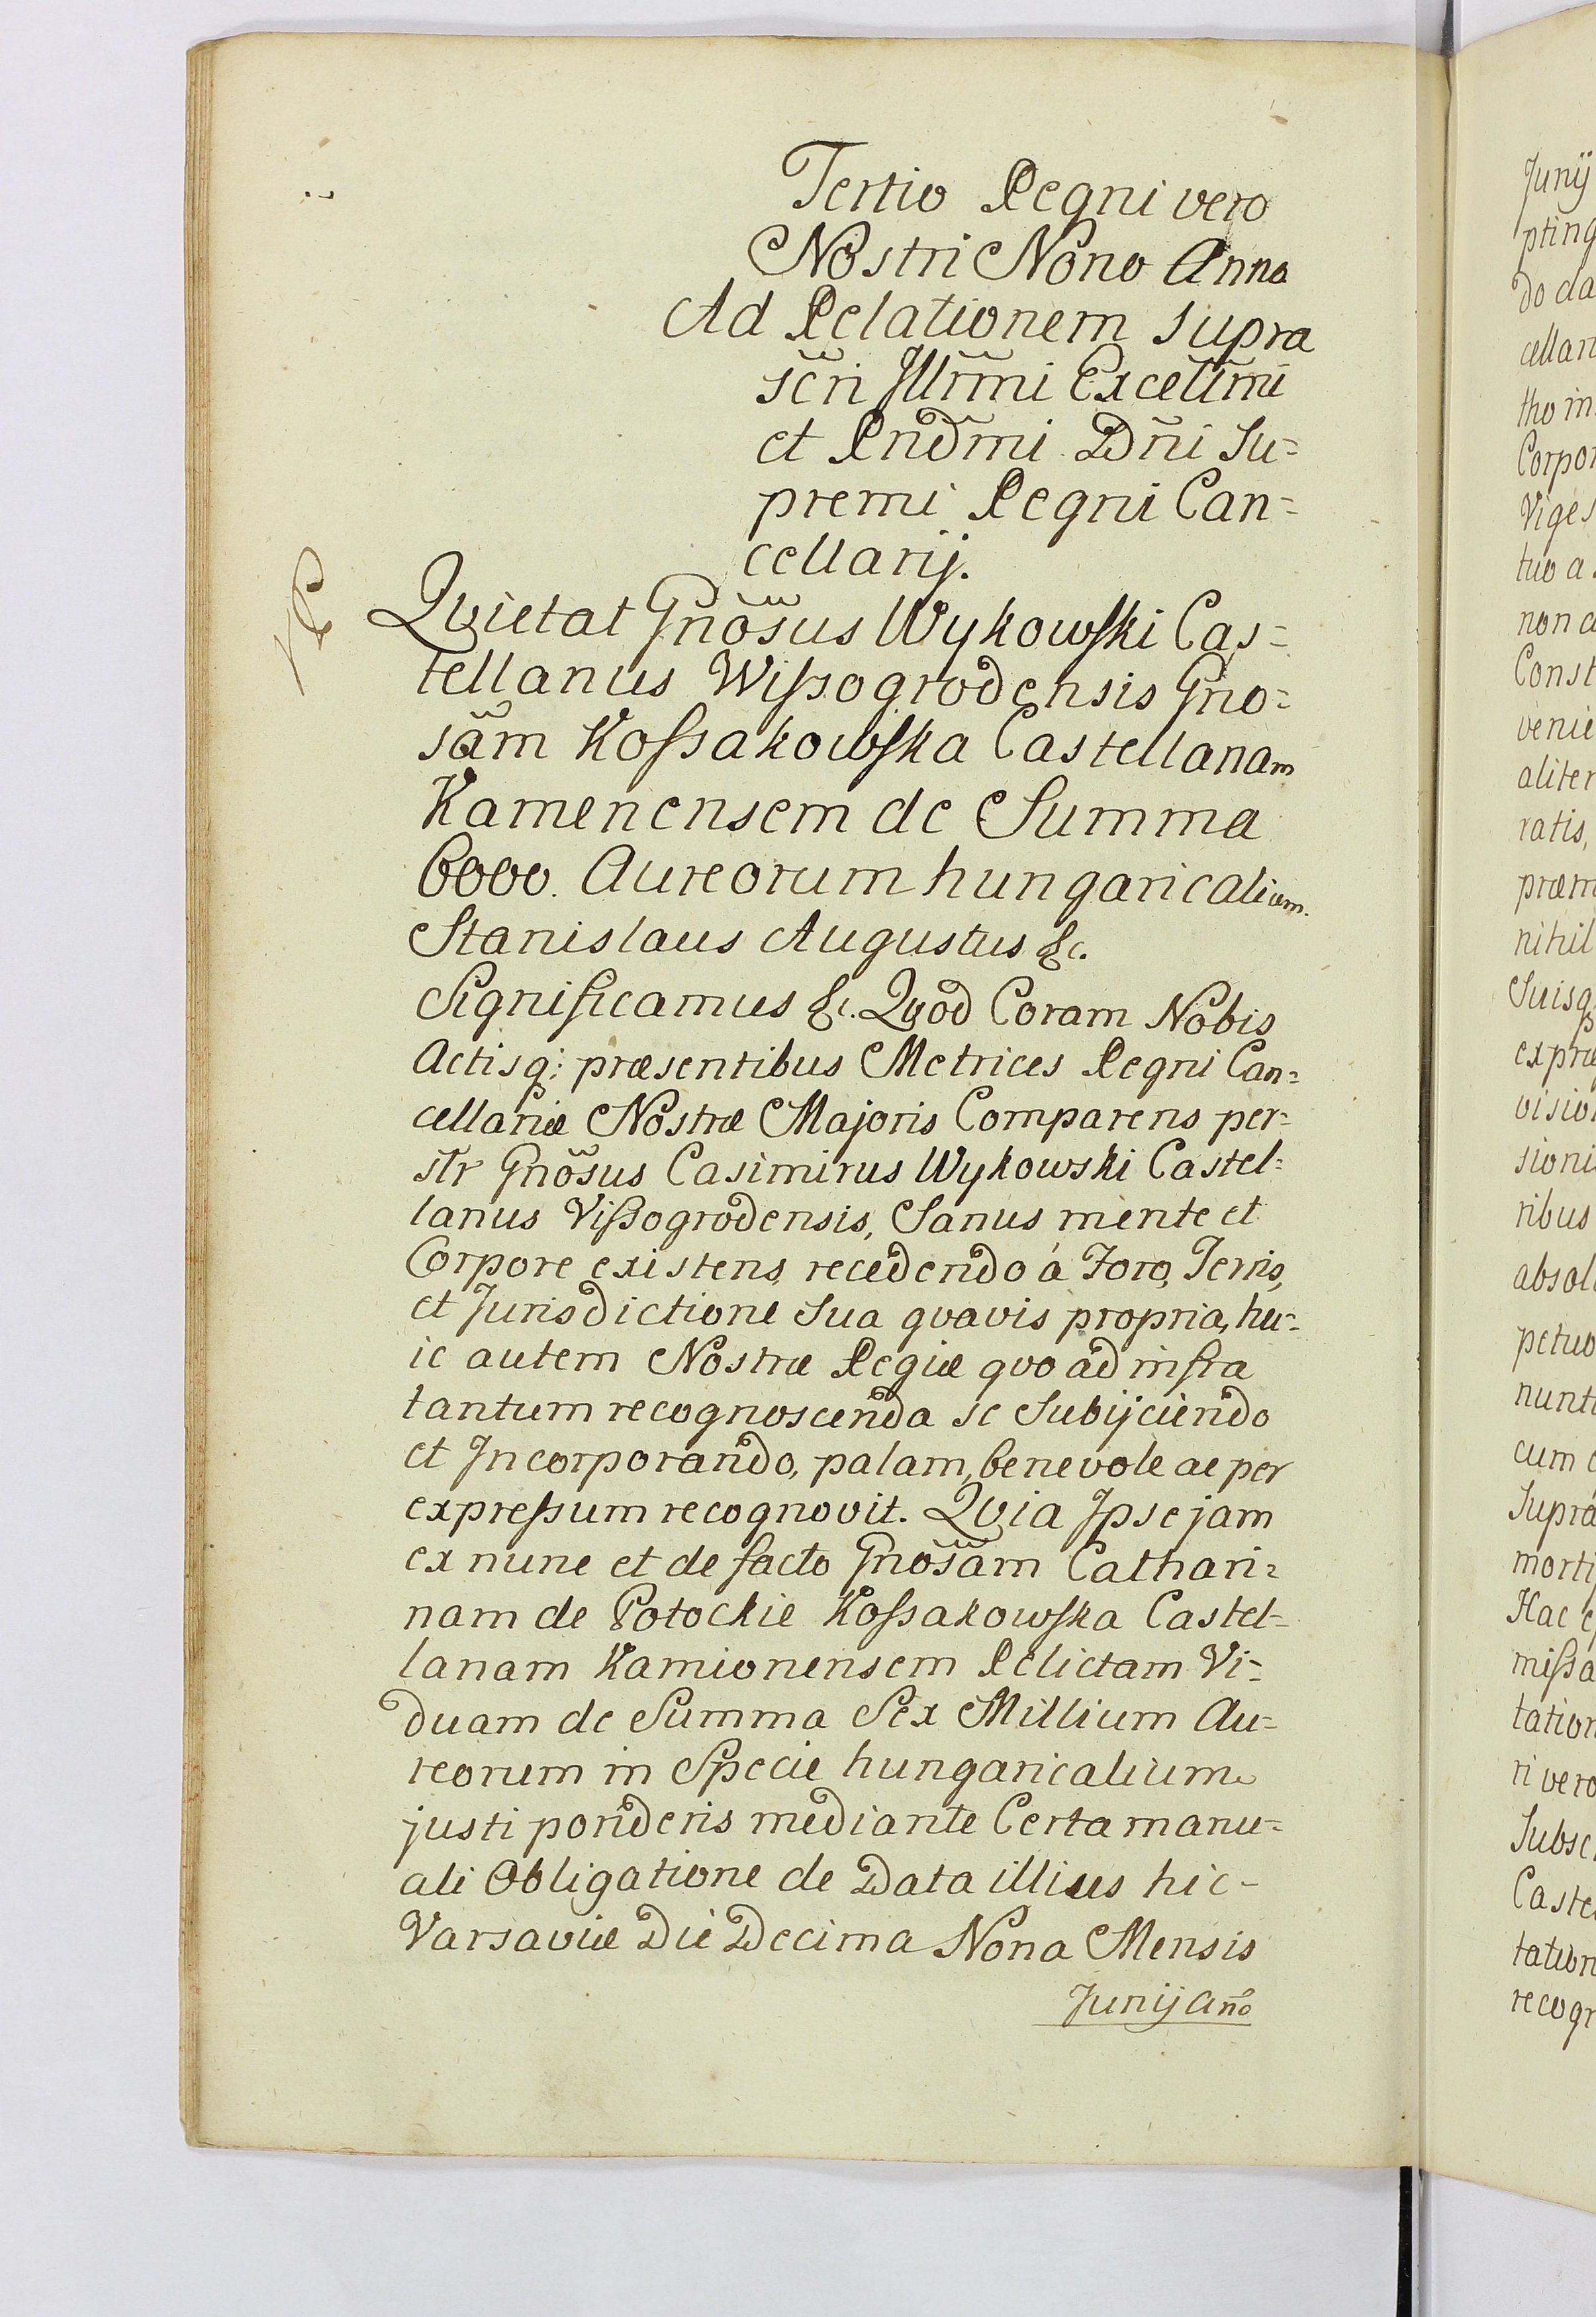 Tertio Regni vero
Nostri Nono Anno
Ad Relationem supra
scri Illrmi Excellmi
et Rndmi Dni Su=
premi Regni Can=
cellarij.
Qvietat Gnosus Wykowski Cas=
tellanus Wissogrodensis Gno=
sam Kossakowska Castellanam
Kamenensem de Summa
6000. Aureorum hungaricalium.
Stanislaus Augustus &c.
Significamus &c. Qvod Coram Nobis
Actisq; præsentibus Metrices Regni Can=
cellariæ Nostræ Majoris Comparens per=
str Gnosus Casimirus Wykowski Castel=
lanus Vissogrodensis, Sanus mente et
Corpore existens, recedendo á Foro, Terris,
et Jurisdictione Sua qvavis propria, hu=
ic autem Nostræ Regiæ qvo ad infra
tantum recognoscenda se Subijciendo
et Incorporando, palam, benevole ac per
expressum recognovit. Qvia Ipse jam
ex nunc et de facto Gnosam Cathari=
nam de Potockie Kossakowska Castel=
lanam Kamionensem Relictam Vi=
duam de Summa Sex Millium Au=
reorum in Specie hungaricalium
justi ponderis mediante Certa manu=
ali Obligatione de Data illius hic-
Varsaviæ Die Decima Nona Mensis
Junij Ano
Junij
pting
do da
cellari
tho in
Corpor
Viges
tuo a
non a
Const
venie
aliter
ratis,
præm
nihil
Suisq
expræ
visio
sioni
ribus
absol
petuo
nunt
cum
Supra
morti
Hac
missa
tation
ri vero
Subsc
Caste
tation
recogn